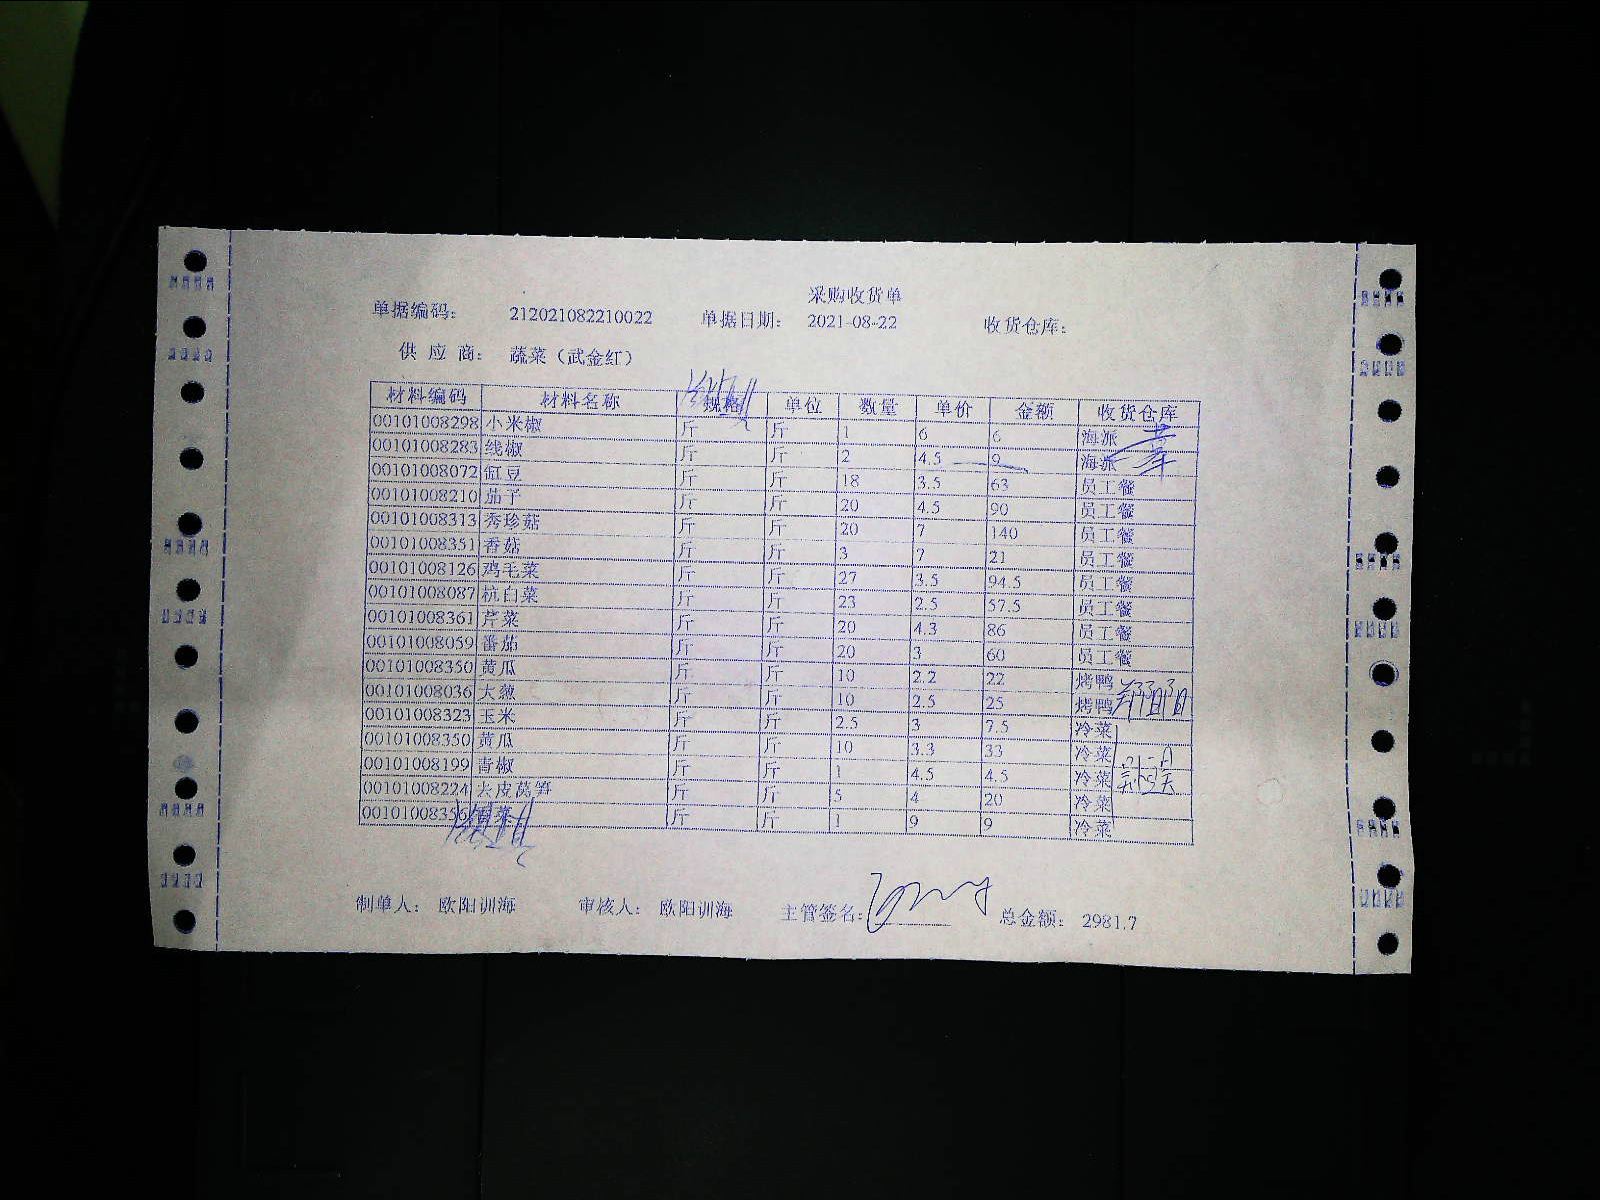 采购收货单
单据编码: 212021082210022 单据日期: 2021-08-22 收货仓库:
供 应 商: 蔬菜（武金红）
材料编码 材料名称 规格 单位 数量 单价 金额 收货仓库
00101008298 小米椒 斤 斤 1 6 6 海派
00101008283 线椒 斤 斤 2 4.5 9 海派
00101008072 缸豆 斤 斤 18 3.5 63 员工餐
00101008210 茄子 斤 斤 20 4.5 90 员工餐
00101008313 秀珍菇 斤 斤 20 7 140 员工餐
00101008351 香菇 斤 斤 3 7 21 员工餐
00101008126 鸡毛菜 斤 斤 27 3.5 94.5 员工餐
00101008087 杭白菜 斤 斤 23 2.5 57.5 员工餐
00101008361 芹菜 斤 斤 20 4.3 86 员工餐
00101008059 番茄 斤 斤 20 3 60 员工餐
00101008350 黄瓜 斤 斤 10 2.2 22 烤鸭
00101008036 大葱 斤 斤 10 2.5 25 烤鸭
00101008323 玉米 斤 斤 2.5 3 7.5 冷菜
00101008350 黄瓜 斤 斤 10 3.3 33 冷菜
00101008199 青椒 斤 斤 1 4.5 4.5 冷菜
00101008224 去皮莴笋 斤 斤 5 4 20 冷菜
00101008356 斤 斤 1 9 9 冷菜
制单人: 欧阳训海 审核人: 欧阳训海 主管签名: 总金额: 2981.7